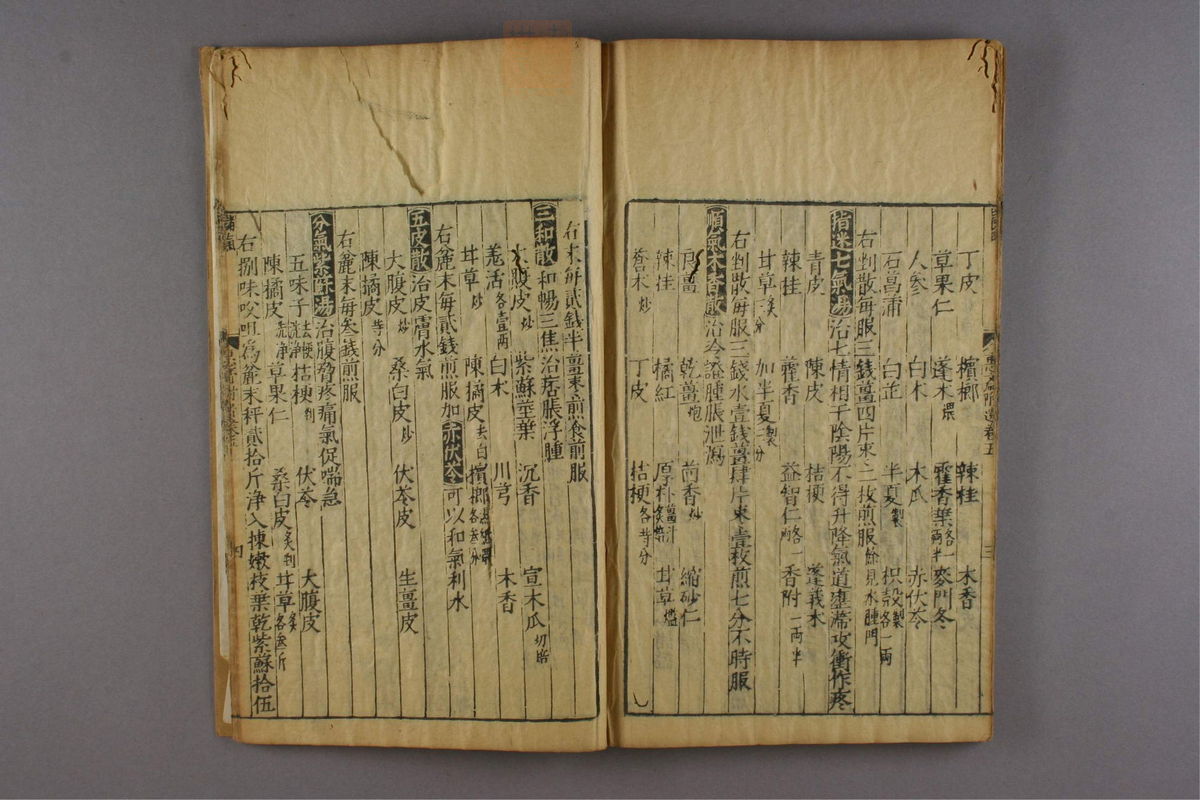 丁皮 檳榔 辣桂 木香
草果仁 蓬朮煨 藿香葉各一兩半 麥門冬
人參 白朮 木瓜 赤伏苓
石菖蒲 白芷 半夏製 枳殼製各一兩
右剉散每服三錢薑四片棗二枚煎服餘見水腫門
指迷七氣湯治七情相干陰陽不得升降氣道壅滯攻衝作疼
青皮 陳皮 桔梗 蓬莪朮
辣桂 藿香 益智仁各一兩 香附一兩半
甘草炙三分 加半夏製二分
右剉散每服三錢水壹錢薑肆片棗壹枚煎七分不時服
順氣木香散治冷證腫脹泄瀉
良薑 乾薑炮 茴香炒 縮砂仁
辣桂 橘紅 厚朴薑汁炙 甘草
蒼朮炒 丁皮 桔梗各等分
右末每貳錢半薑棗煎食前服
三和散和暢三焦治痞脹浮腫
大腹皮炒 紫蘇莖葉 沉香 宣木瓜切焙
羌活各壹兩 白朮 川芎 木香
甘草炒 陳橘皮去白 檳榔各叁分
右麄末每貳錢煎服加赤伏苓可以和氣利水
五皮散治皮膚水氣
大腹皮炒 桑白皮炒 伏苓皮 生薑皮
陳橘皮等分
右麄末每叁錢煎服
分氣紫蘇湯治腹脅疼痛氣促喘急
五味子去梗洗淨 桔梗剉 伏苓 大腹皮
陳橘皮洗淨 草果仁 桑白皮炙剉 甘草炙各叁斤
右捌味㕮咀為麄末秤貳拾斤淨入揀嫩枝葉乾紫蘇拾伍